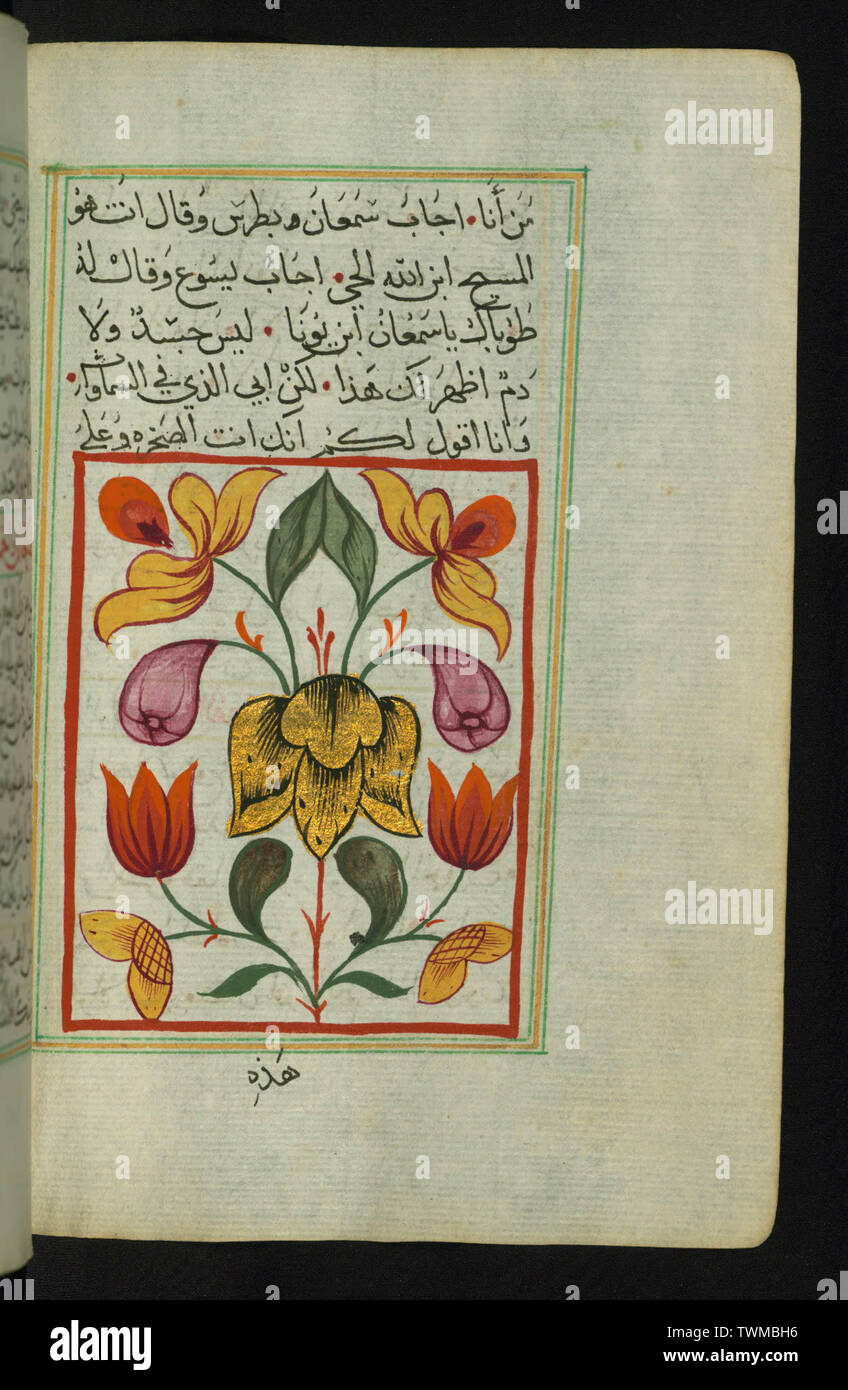 من أنا • اجاب سمعان و بطرس وقال انت هو
المسيح ابن الله الحي • اجاب ليسوع وقال له
طوباك يا سمعان ابن يونا • ليس جسدٌ ولا
دم اظهر لك هذا • لكن ابي الذي في السماوات •
وانا اقول لكم انك انت الصخره وعلى
هَذِهِ
alamy
Image ID: TWMBH6
www.alamy.com